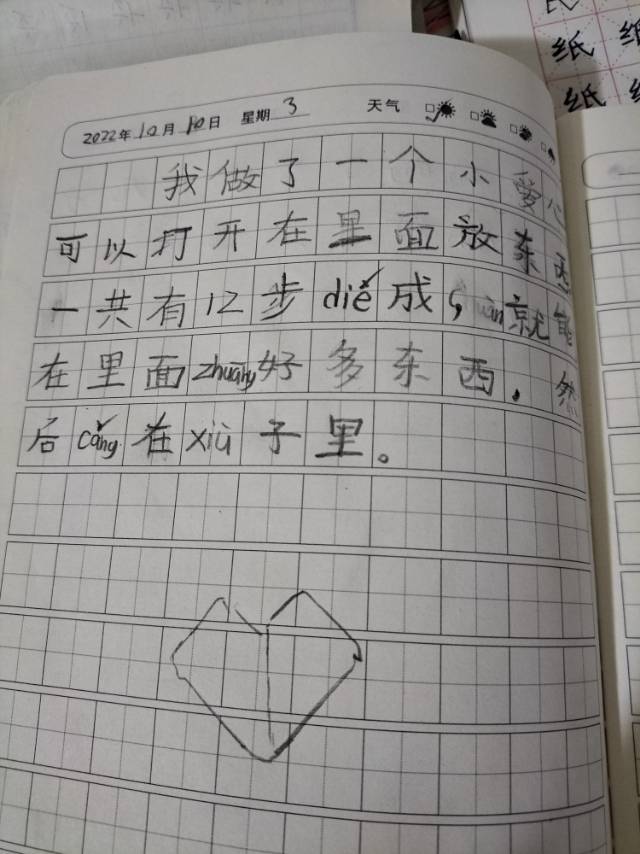 2022年10月10日 星期3 天气
我做了一个小爱心
可以打开在里面放东西
一共有12步dié成,就能
在里面zhuāng好多东西,然
后cǎng在xiù子里。
纸
纸